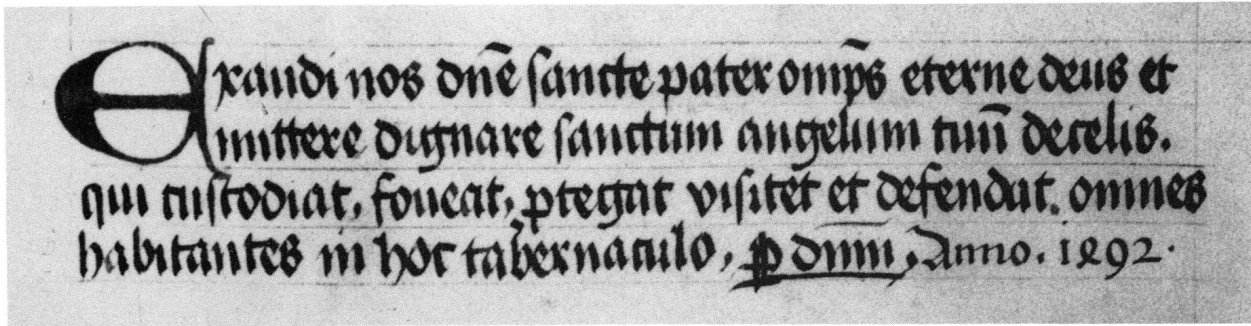 Exaudi nos dn̄e sancte pater omp̄s eterne deus et
mittere dignare sanctum angelum tuū de celis.
qui custodiat, foueat, ꝓtegat visitet et defendat. omnes
habitantes in hoc tabernaculo, ꝑ dnm̄. Anno. 1892.